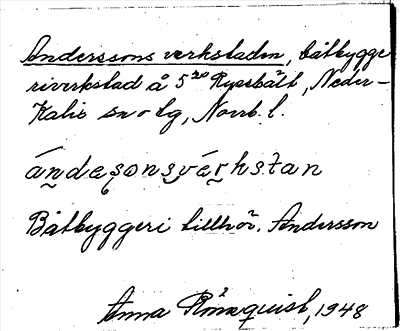 Anderssons verkstaden, båtbygge
riverkstad å 5²⁰ Ryssbält, Neder-
Kalix sn o tg, Norrb. l.
ándeʂonsvérkstan
Båtbyggeri tillhör. Andersson
Anna Rönnquist, 1948